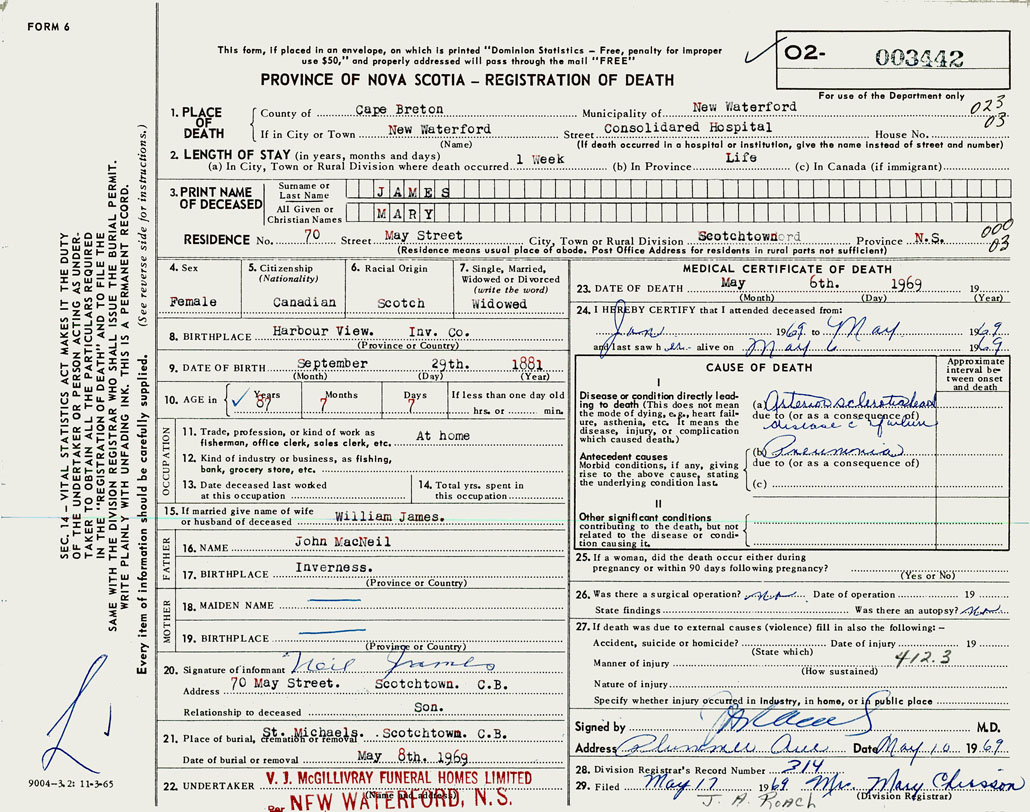 FORM 6
This form, if placed in an envelope, on which is printed "Dominion Statistics – Free, penalty for improper
use $50," and properly addressed will pass through the mail "FREE"
PROVINCE OF NOVA SCOTIA – REGISTRATION OF DEATH
02- 003442
For use of the Department only
023
03
1. PLACE OF DEATH
County of Cape Breton Municipality of New Waterford
If in City or Town New Waterford Street Consolidared Hospital House No.
(Name) (If death occurred in a hospital or institution, give the name instead of street and number)
2. LENGTH OF STAY (in years, months and days)
(a) In City, Town or Rural Division where death occurred 1 Week (b) In Province Life (c) In Canada (if immigrant)
3. PRINT NAME OF DECEASED
Surname or Last Name JAMES
All Given or Christian Names MARY
RESIDENCE No. 70 Street May Street City, Town or Rural Division Scotchtown Province N.S.
000
03
(Residence means usual place of abode. Post Office Address for residents in rural parts not sufficient)
4. Sex
Female
5. Citizenship
(Nationality)
Canadian
6. Racial Origin
Scotch
7. Single, Married,
Widowed or Divorced
(write the word)
Widowed
8. BIRTHPLACE Harbour View. Inv. Co.
(Province or Country)
9. DATE OF BIRTH September 29th. 1881
(Month) (Day) (Year)
10. AGE in Years Months Days If less than one day old
87 7 7 hrs. or min.
OCCUPATION
11. Trade, profession, or kind of work as
fisherman, office clerk, sales clerk, etc. At home
12. Kind of industry or business, as fishing,
bank, grocery store, etc.
13. Date deceased last worked
at this occupation
14. Total yrs. spent in
this occupation
15. If married give name of wife
or husband of deceased William James.
FATHER
16. NAME John MacNeil
17. BIRTHPLACE Inverness.
(Province or Country)
MOTHER
18. MAIDEN NAME
19. BIRTHPLACE
(Province or Country)
20. Signature of informant Neil James
Address 70 May Street. Scotchtown. C.B.
Relationship to deceased Son.
21. Place of burial, cremation or removal St. Michaels. Scotchtown. C.B.
Date of burial or removal May 8th. 1969
22. UNDERTAKER V. J. McGILLIVRAY FUNERAL HOMES LIMITED
(Name and address)
Per NEW WATERFORD, N.S.
MEDICAL CERTIFICATE OF DEATH
23. DATE OF DEATH May 6th. 1969 19
(Month) (Day) (Year)
24. I HEREBY CERTIFY that I attended deceased from:
Jan 1969 to May 1969
and last saw her alive on May 6 1969
CAUSE OF DEATH
Approximate interval between onset and death
I
Disease or condition directly leading to death (This does not mean the mode of dying, e.g., heart failure, asthenia, etc. It means the disease, injury, or complication which caused death.)
(a) Arteriosclerotic
due to (or as a consequence of)
disease c failure
Antecedent causes
Morbid conditions, if any, giving rise to the above cause, stating the underlying condition last.
(b) Pneumonia
due to (or as a consequence of)
(c)
II
Other significant conditions
contributing to the death, but not related to the disease or condition causing it.
25. If a woman, did the death occur either during
pregnancy or within 90 days following pregnancy?
(Yes or No)
26. Was there a surgical operation? no Date of operation 19
State findings Was there an autopsy? no
27. If death was due to external causes (violence) fill in also the following: –
Accident, suicide or homicide? Date of injury 19
(State which)
412.3
Manner of injury
(How sustained)
Nature of injury
Specify whether injury occurred in Industry, in home, or in public place
Signed by M.D.
Address Plummer Ave Date May 10 1969
28. Division Registrar's Record Number 314
29. Filed May 17 1969 Mrs. Mary
(Division Registrar)
J. A. ROACH
SEC. 14 – VITAL STATISTICS ACT MAKES IT THE DUTY
OF THE UNDERTAKER OR PERSON ACTING AS UNDER-
TAKER TO OBTAIN ALL THE PARTICULARS REQUIRED
IN THE "REGISTRATION OF DEATH" AND TO FILE THE
SAME WITH THE DIVISION REGISTRAR WHO SHALL ISSUE THE BURIAL PERMIT.
WRITE PLAINLY WITH UNFADING INK. THIS IS A PERMANENT RECORD.
Every item of information should be carefully supplied. (See reverse side for instructions.)
9004-3.2: 11-3-65